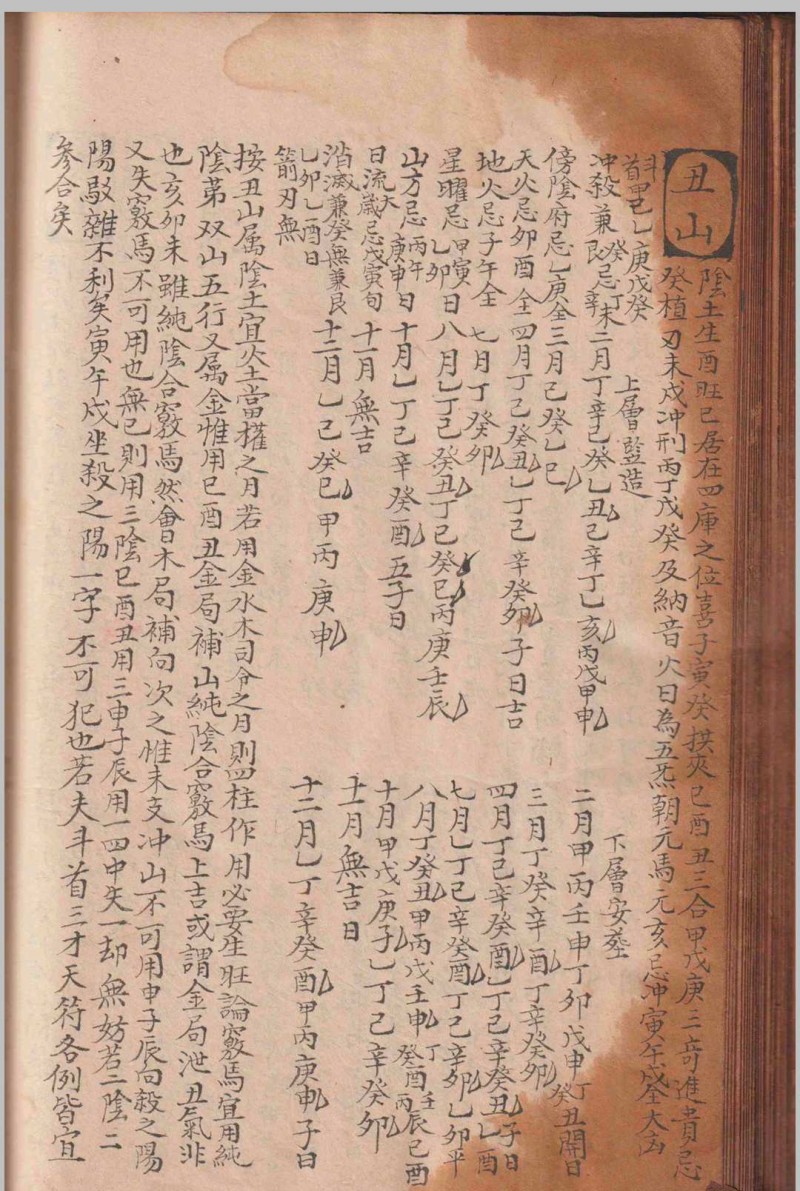 丑山
陰土生酉旺巳居在四庫之位喜子寅癸拱夾巳酉丑三合甲戊庚三奇進貴忌
癸植刃未戌冲刑丙丁戊癸及納音火日為五炁朝元馬元亥忌冲寅午戌全大凶
斗首 乙庚戊癸 上層竪造
冲殺兼艮癸忌丁辛未二月丁辛己癸乙丑己辛丁乙亥丙戊甲申
傍陰府忌乙庚全三月己癸乙巳
天火忌卯酉全四月丁己癸丑乙丁己辛癸卯子日吉
地火忌子午全七月丁癸卯
星曜忌甲寅乙卯日八月乙丁己癸丑丁己癸巳丙庚壬辰
山方忌丙午庚申日十月乙丁己辛癸酉五子日
日流太歲忌戊寅旬十一月無吉
消滅兼癸無兼艮十二月乙己癸巳甲丙庚申
乙卯乙酉日
箭刃無
下層安葬
二月甲丙壬申丁卯戊申丁癸丑開日
三月丁癸辛酉丁辛癸卯
四月丁己辛癸酉乙丁己辛癸丑乙酉子日
七月乙丁己辛癸酉丁己辛卯乙卯平
八月丁癸丑甲丙戊壬申丁癸酉壬丙辰己酉
十月甲戊庚子乙丁己辛癸卯
十一月無吉日
十二月乙丁辛癸酉甲丙庚申子日
按丑山屬陰土宜火土當權之月若用金水木司令之月則四柱作用必要生旺論竅馬宜用純
陰第双山五行又屬金惟用巳酉丑金局補山純陰合竅馬上吉或謂金局泄丑氣非
也亥卯未雖純陰合竅馬然會木局補向次之惟未支冲山不可用申子辰向殺之陽
又失竅馬不可用也無已則用三陰巳酉丑用三申子辰用一四中失一却無妨若二陰二
陽駁雜不利矣寅午戌坐殺之陽一字不可犯也若夫斗首三才天符各例皆宜
參合矣